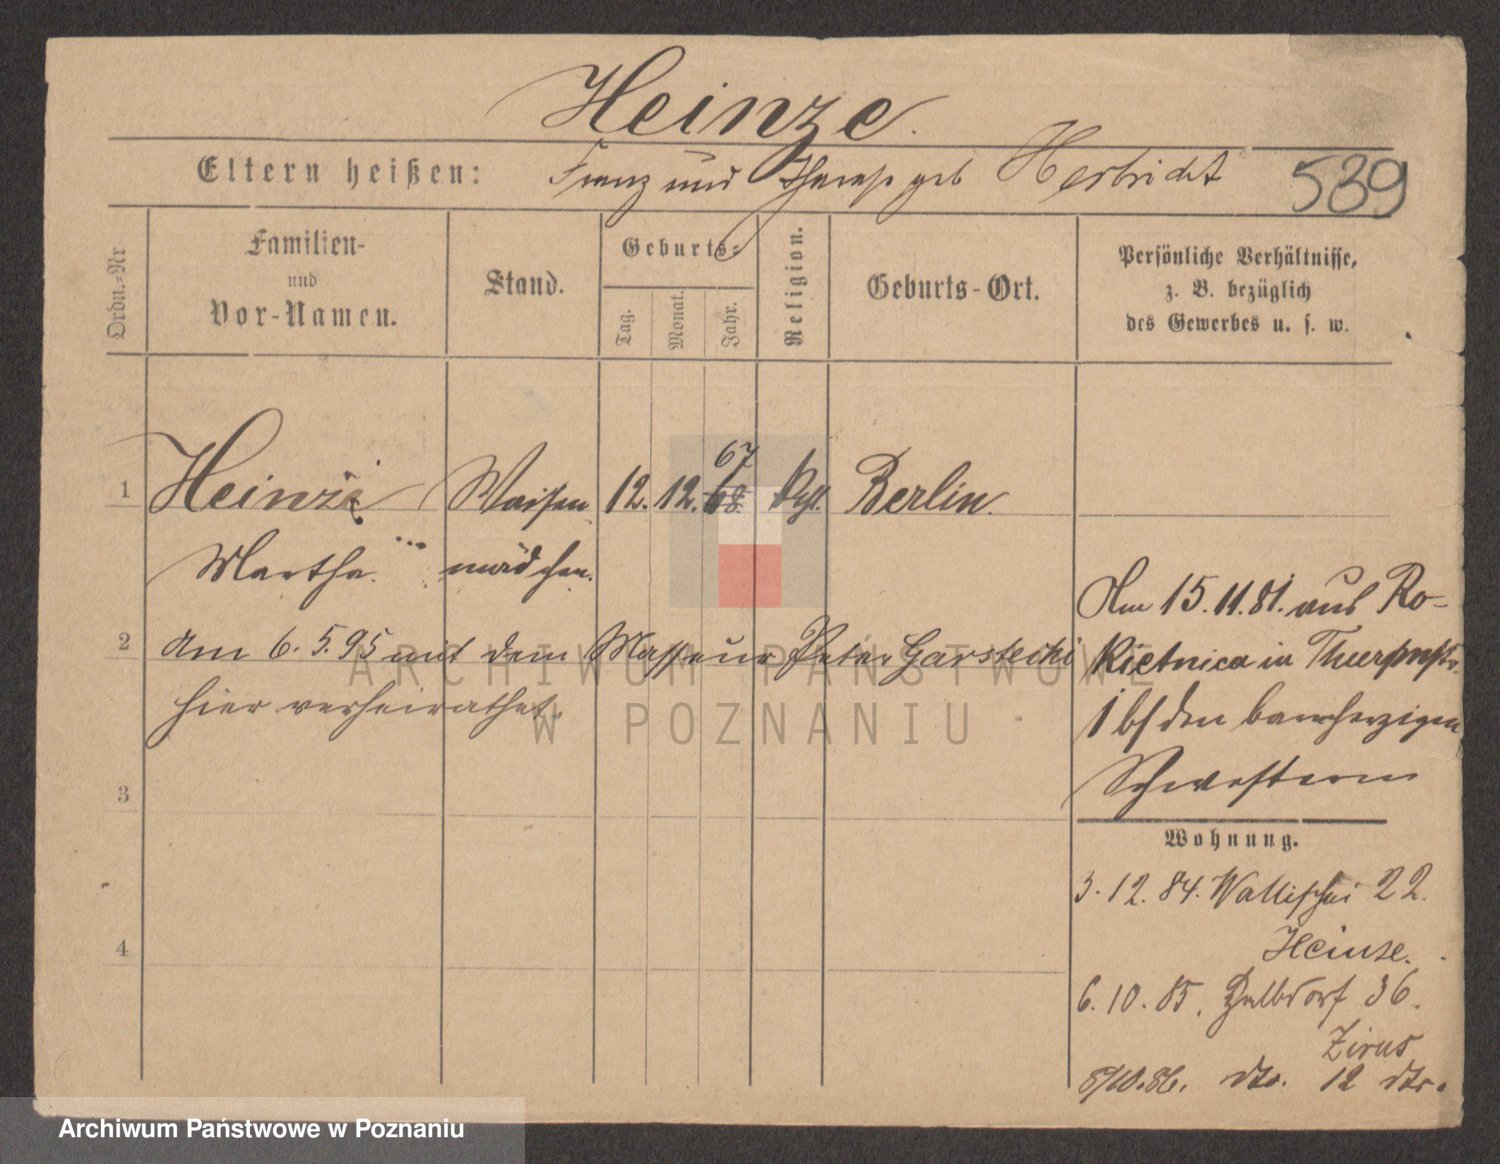 Heinze.
Eltern heißen: Franz und Theres geb Herbricht
539
Ordn.-Nr
Familien-
und
Vor-Namen.
Stand.
Geburts-
Tag.
Monat.
Jahr.
Religion.
Geburts-Ort.
Persönliche Verhältnisse,
z. B. bezüglich
des Gewerbes u. s. w.
67
1 Heinze Waisen 12. 12. 68. Berlin.
Martha. mädchen.
Am 15.11.81. aus Ro-
kietnica in
1 bei den barmherzigen
Schwestern
2 Am 6.5.95 mit dem Masseur Peter Garstecki
hier verheirathet.
3
4
Wohnung.
3.12.84. Wallischei 22.
Heinze.
6.10.85. Halbdorf 36.
Zirus
8/10.86. dto. 12 dto.
ARCHIWUM PAŃSTWOWE
W POZNANIU
Archiwum Państwowe w Poznaniu